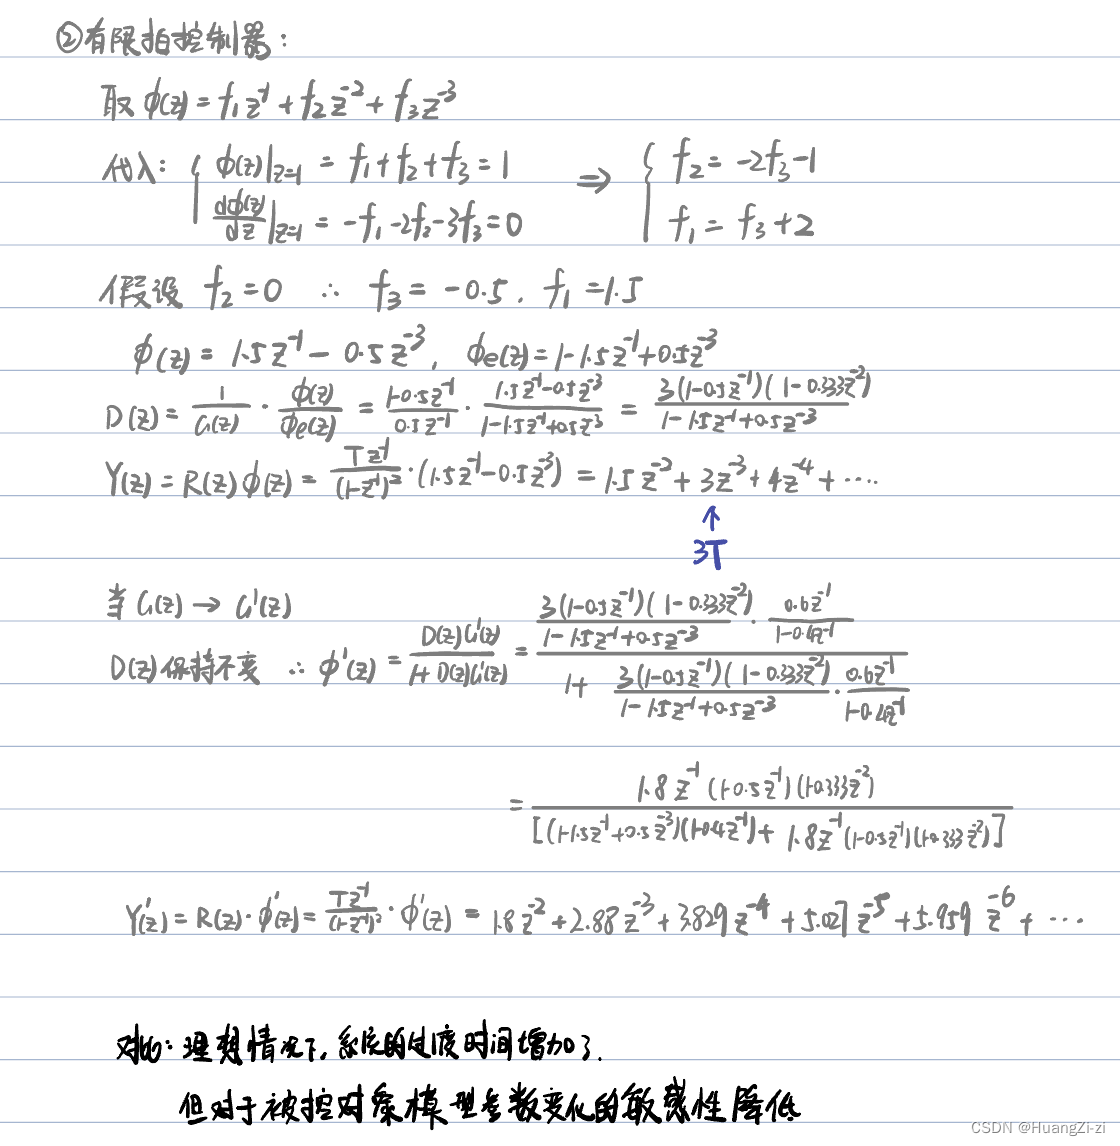 ②有限拍控制器：
取 φ(z) = f₁z⁻¹ + f₂z⁻² + f₃z⁻³
代入： { φ(z)|z=1 = f₁+f₂+f₃ = 1 ⇒ { f₂ = -2f₃-1
dφ(z)/dz|z=1 = -f₁-2f₂-3f₃ = 0 f₁ = f₃+2
假设 f₂=0 ∴ f₃ = -0.5 . f₁ = 1.5
φ(z) = 1.5z⁻¹ - 0.5z⁻³, φe(z) = 1-1.5z⁻¹+0.5z⁻³
D(z) = 1/G(z) · φ(z)/φe(z) = (1-0.5z⁻¹)/(0.5z⁻¹) · (1.5z⁻¹-0.5z⁻³)/(1-1.5z⁻¹+0.5z⁻³) = 3(1-0.5z⁻¹)(1-0.333z⁻²)/(1-1.5z⁻¹+0.5z⁻³)
Y(z) = R(z)φ(z) = Tz⁻¹/(1-z⁻¹)² · (1.5z⁻¹-0.5z⁻³) = 1.5z⁻² + 3z⁻³ + 4z⁻⁴ + ····
↑
3T
当 G(z) → G'(z)
D(z)保持不变 ∴ φ'(z) = D(z)G'(z)/(1+D(z)G'(z)) = [3(1-0.5z⁻¹)(1-0.333z⁻²)/(1-1.5z⁻¹+0.5z⁻³) · 0.6z⁻¹/(1-0.4z⁻¹)] / [1+ 3(1-0.5z⁻¹)(1-0.333z⁻²)/(1-1.5z⁻¹+0.5z⁻³) · 0.6z⁻¹/(1-0.4z⁻¹)]
= 1.8z⁻¹(1-0.5z⁻¹)(1-0.333z⁻²) / [(1-1.5z⁻¹+0.5z⁻³)(1-0.4z⁻¹) + 1.8z⁻¹(1-0.5z⁻¹)(1-0.333z⁻²)]
Y'(z) = R(z)·φ'(z) = Tz⁻¹/(1-z⁻¹)² · φ'(z) = 1.8z⁻² + 2.88z⁻³ + 3.829z⁻⁴ + 5.027z⁻⁵ + 5.959z⁻⁶ + ···
对比：理想情况下，系统的过渡时间增加了.
但对于被控对象模型参数变化的敏感性降低
CSDN @HuangZi-zi